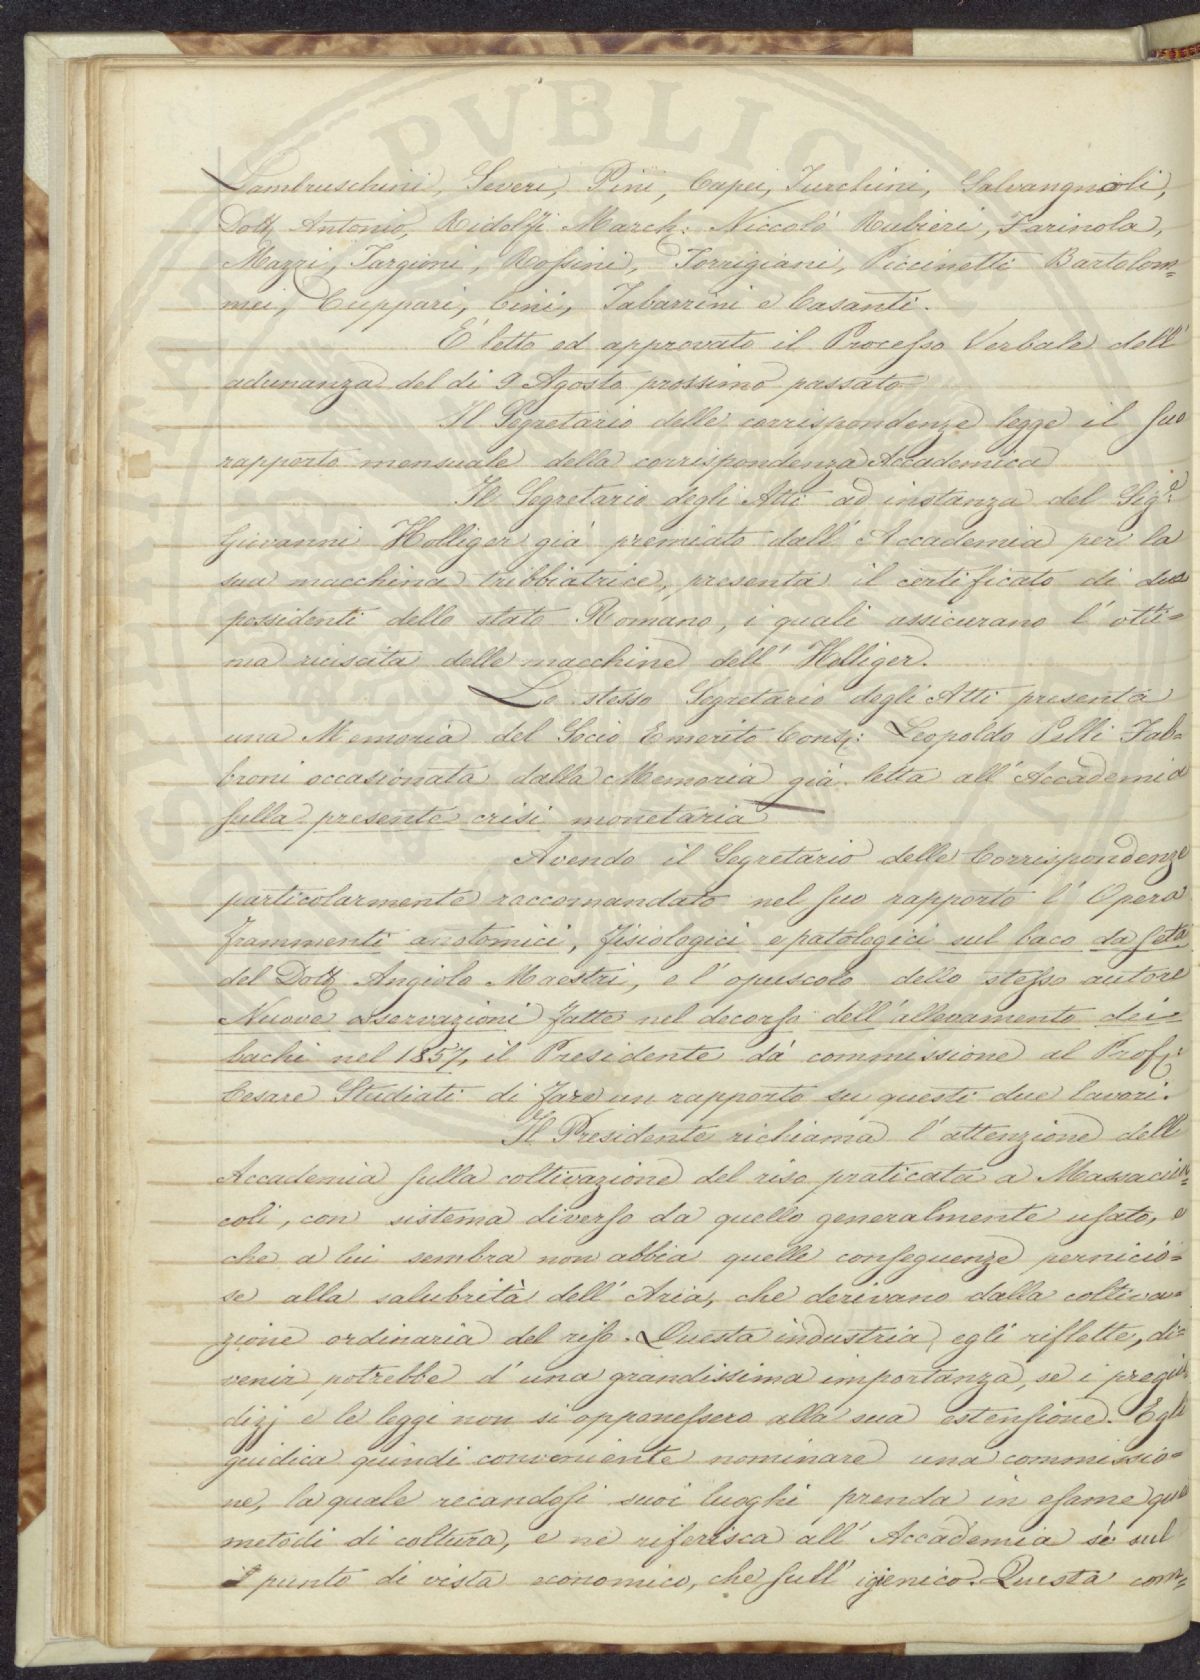 Lambruschini, Severi, Pini, Capei, Turchini, Salvangnoli,
Dott. Antonio, Ridolfi March: Niccolò Rubieri, Farinola,
Mazzi, Targioni, Rossini, Torrigiani, Piccinetti Bartolom-
mei, Cuppari, Cini, Tabarrini e Casanti.
È letto ed approvato il Processo Verbale dell'
adunanza del dì 9 Agosto prossimo passato
Il Segretario delle corrispondenze legge il suo
rapporto mensuale della corrispondenza Accademica
Il Segretario degli Atti ad instanza del Sig.r
Giovanni Holliger già premiato dall' Accademia per la
sua macchina tribbiatrice, presenta il certificato di due
possidenti dello stato Romano, i quali assicurano l'otti=
ma riuscita delle macchine dell' Holliger.
Lo stesso Segretario degli Atti presenta
una Memoria del Socio Emerito Cons: Leopoldo Pelli Fab=
broni occasionata dalla Memoria già letta all' Accademia
sulla presente crisi monetaria
Avendo il Segretario delle Corrispondenze
particolarmente raccomandato nel suo rapporto l' Opera
frammenti anatomici, fisiologici e patologici sul baco da seta
del Dott. Angiolo Maestri, e l' opuscolo dello stesso autore
Nuove osservazioni fatte nel decorso dell' allevamento dei
bachi nel 1857, il Presidente dà commissione al Prof:
Cesare Studiati di fare un rapporto su questi due lavori.
Il Presidente richiama l' attenzione dell'
Accademia sulla coltivazione del riso praticata a Massaciuc=
coli, con sistema diverso da quello generalmente usato, e
che a lui sembra non abbia quelle conseguenze pernicio=
se alla salubrità dell' Aria, che derivano dalla coltiva=
zione ordinaria del riso. Questa industria, egli riflette, di=
venir potrebbe d' una grandissima importanza, se i pregiu
dizj e le leggi non si opponessero alla sua estensione. Egli
giudica quindi conveniente nominare una commissio=
ne, la quale recandosi suoi luoghi prenda in esame que
metodi di coltura, e ne riferisca all' Accademia sè sul
punto di vista economico, che sull' igienico. Questa com=